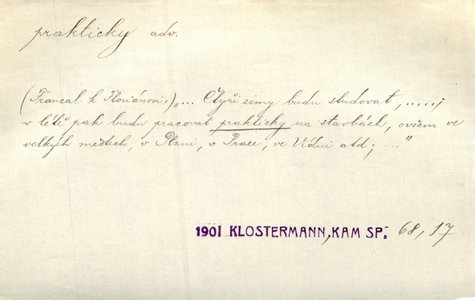 prakticky adv.
(Francal k Floriánovi:) „... Čtyři zimy budu studovat, .....;
v létě pak budu pracovat prakticky na stavbách, ovšem ve
velkých městech, v Plzni, v Praze, ve Vídni atd; ..."
1901 KLOSTERMANN, KAM SP. 68, 17